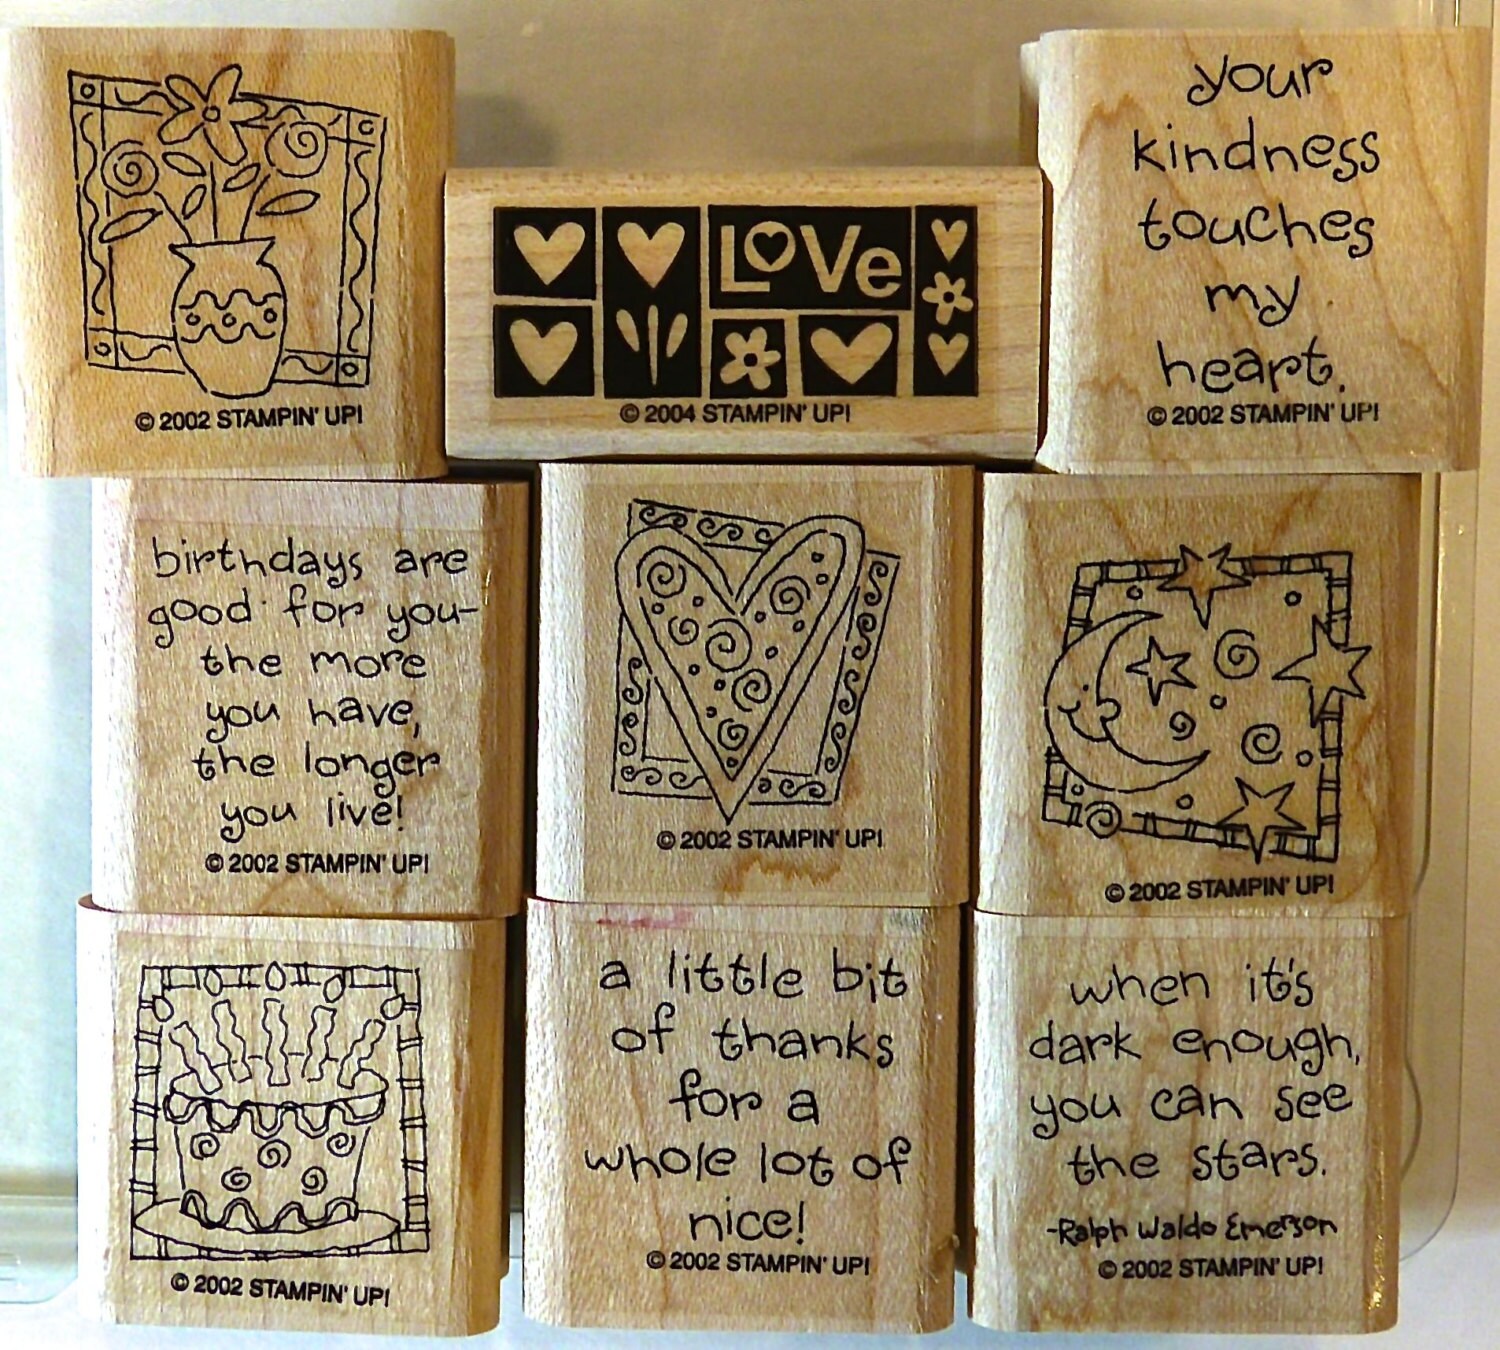 © 2002 STAMPIN' UP!
LOVe
© 2004 STAMPIN' UP!
your
kindness
touches
my
heart.
© 2002 STAMPIN' UP!
birthdays are
good for you-
the more
you have,
the longer
you live!
© 2002 STAMPIN' UP!
© 2002 STAMPIN' UP!
© 2002 STAMPIN' UP!
© 2002 STAMPIN' UP!
a little bit
of thanks
for a
whole lot of
nice!
© 2002 STAMPIN' UP!
when it's
dark enough,
you can see
the stars.
-Ralph Waldo Emerson
© 2002 STAMPIN' UP!